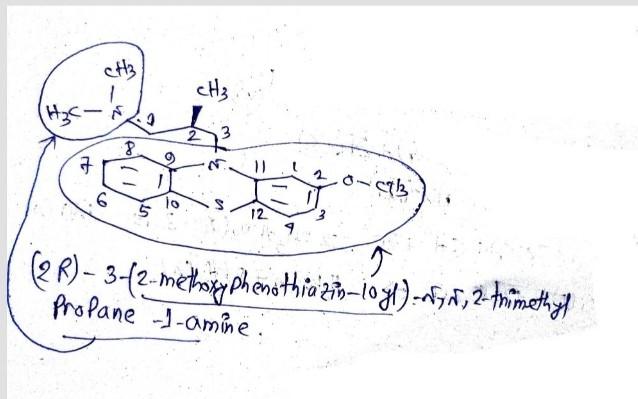 CH3
CH3
H3C-N
1
2
3
8
9
N
11
1
2
O-CH3
7
6
5
10
S
12
4
3
(2R)-3-(2-methoxyphenothiazin-10yl)-N,N,2-trimethyl
Propane-1-amine.